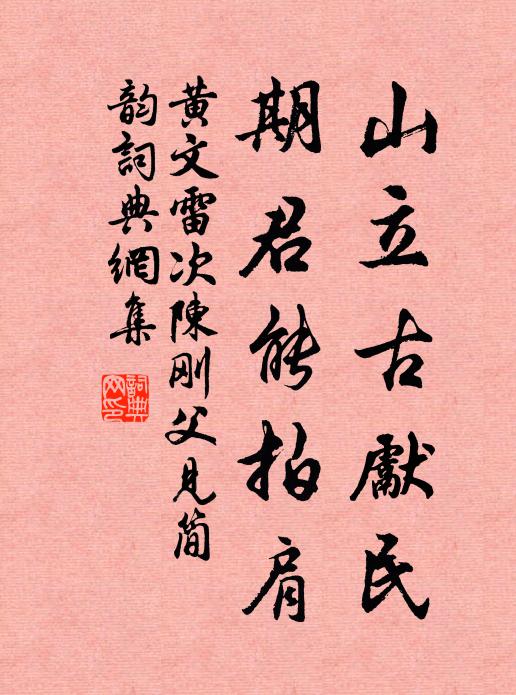 山立古獻民
期君能拍肩
黃文雷次陳刚父見简
韵詞典網集
詞典
网印